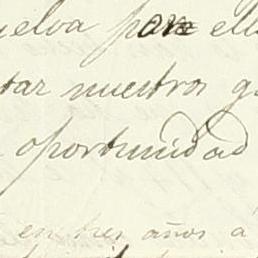 uelva por ell
tar nuestros g
oportunidad
en tres años a